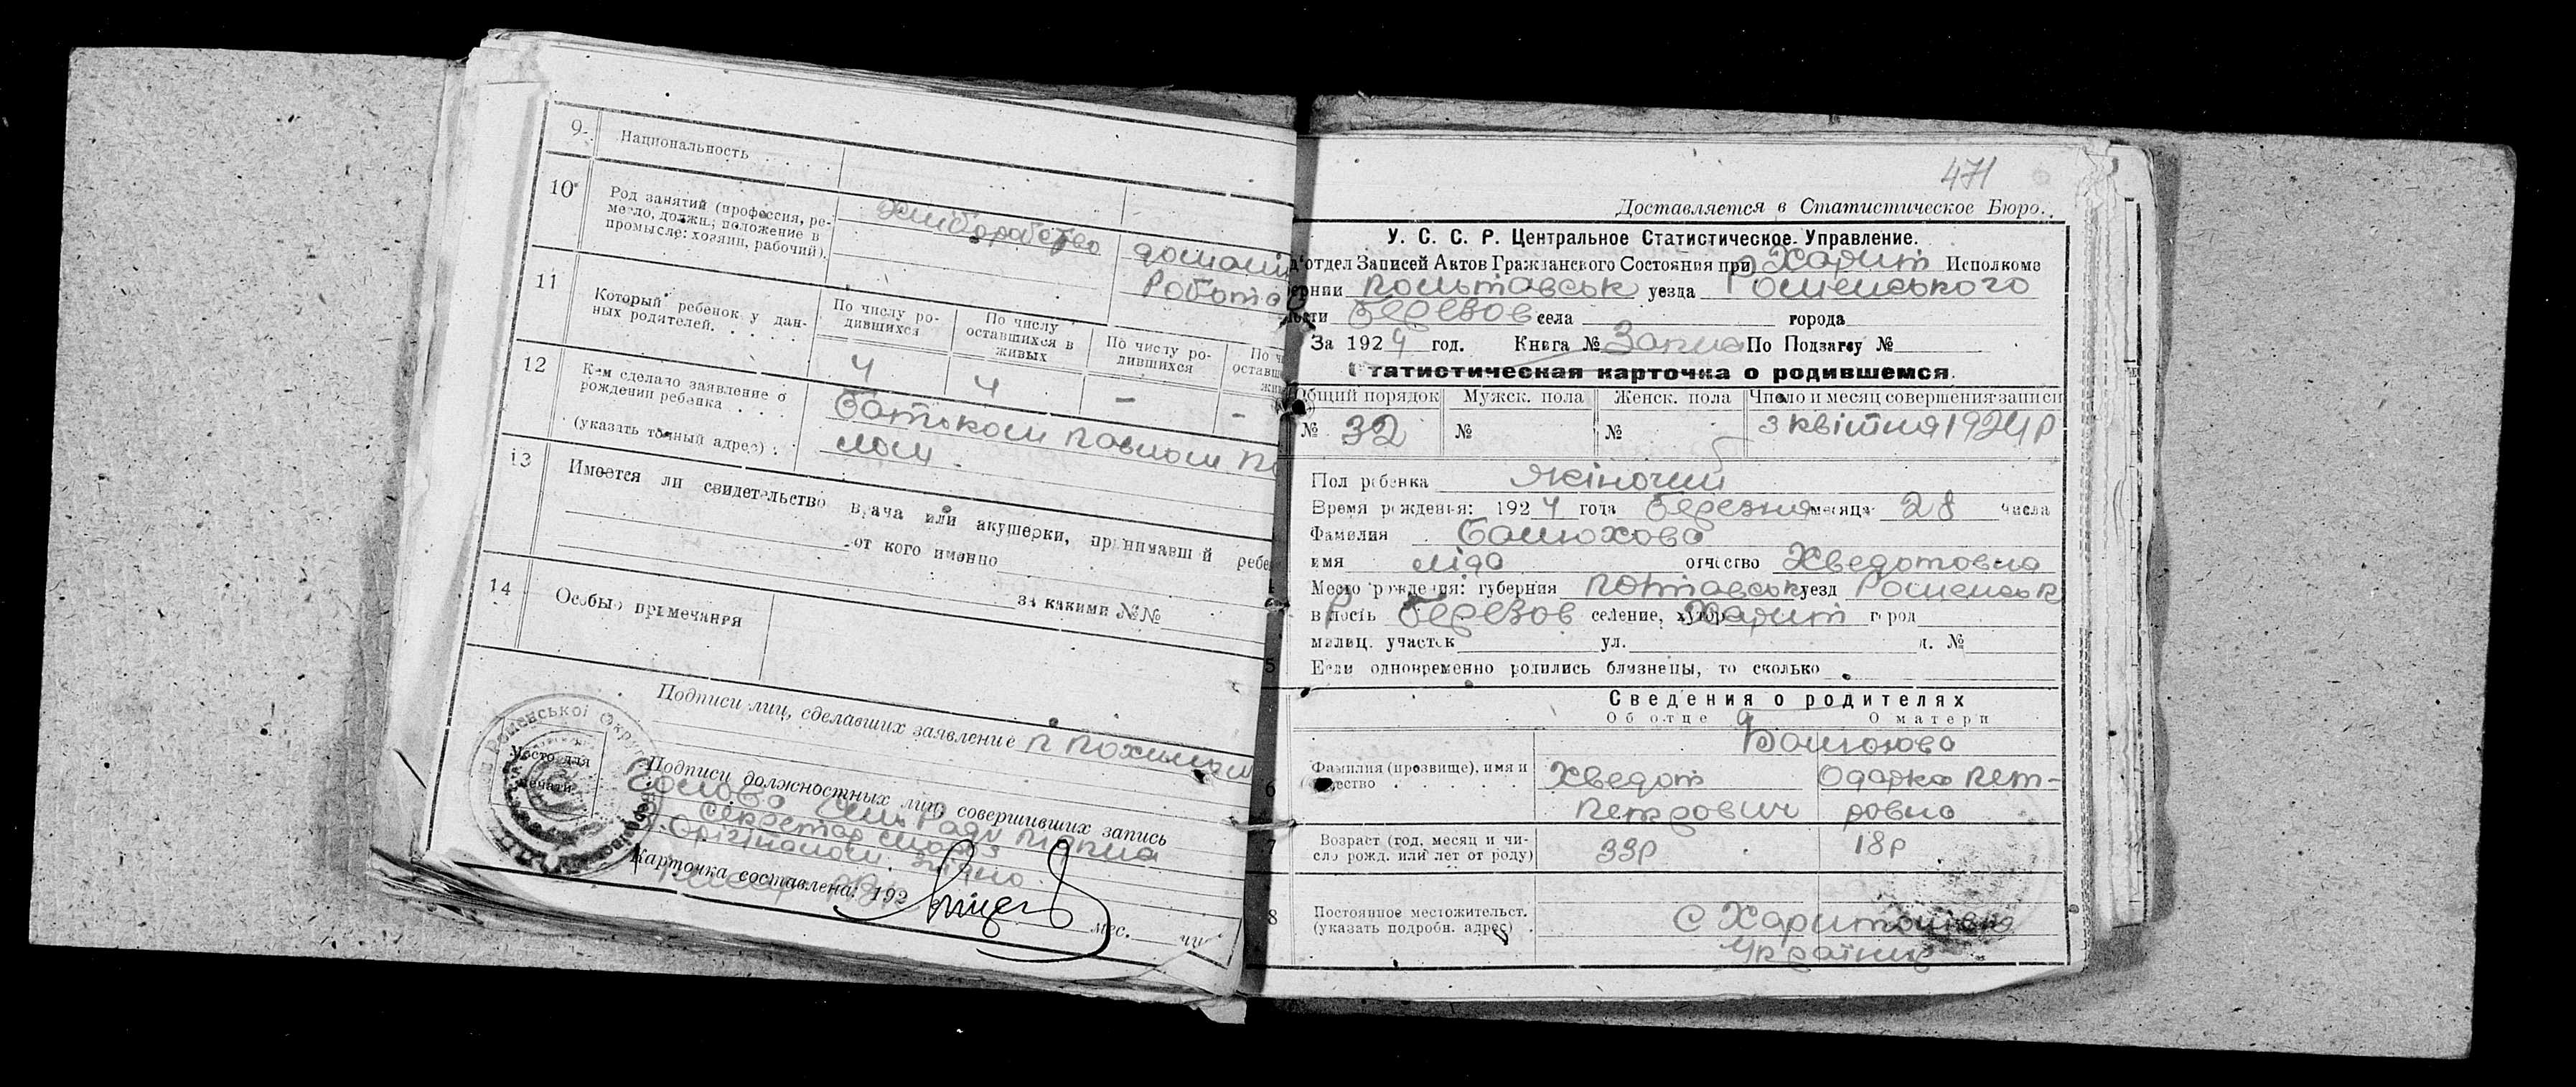 9.
Национальность . . . .
10
Род занятий (профессия, ре-
месло, должн.; положение в
промысле: хозяин, рабочий).
Хлиборобство
домашн
Робота
11
Который ребенок у дан-
ных родителей. . . .
По числу ро-
дившихся
По числу
оставшихся в
живых
По числу ро-
дившихся
По ч
оставш
жи
4
4
-
-
12
Кем сделано заявление о
рождении ребенка . . . .
(указать точный адрес) .
Батьком Павлом
13
Имеется ли свидетельство врача или акушерки, принимавшей ребе
от кого именно
за какими №№
14
Особые примечания
Подписи лиц, сделавших заявление П Похил
Место для
печати
Роменської Округ
Подписи должностных лиц, совершивших запись
Голова Сіль Ради підпис
Секретар
З Орігіналом згідно
Карточка составлена: 192
мес.
чи
471
Доставляется в Статистическое Бюро.
У. С. С. Р. Центральное Статистическое Управление.
д'отдел Записей Актов Гражданского Состояния при Р Харит Исполкоме
ернии Польтавськ уезда Роменського
ости Березов села города
За 1924 год. Книга № Запис По Подзагсу №
Статистическая карточка о родившемся.
Общий порядок Мужск. пола Женск. пола Число и месяц совершения записи
№ 32 № № 3 квітня 1924р
Пол ребенка жіночий
Время рождения: 1924 года Березня месяца 28 числа
Фамилия
имя Ліда отчество Хведотовна
Место рождения: губерния Потавськ уезд Роменськ
в лость Березов селение, хутор Харит город
милиц. участок ул. д. №
5
Если одновременно родились близнецы, то сколько
Сведения о родителях
Об отце О матери
6
Фамилия (прозвище), имя и
чество . . . . . .
Хведот
Петрович
Одарка Пет-
ровна
7
Возраст (год, месяц и чи-
сло рожд. или лет от роду)
33р
18р
8
Постоянное местожительст.
(указать подробн. адрес) .
С Харитонівка
Українці